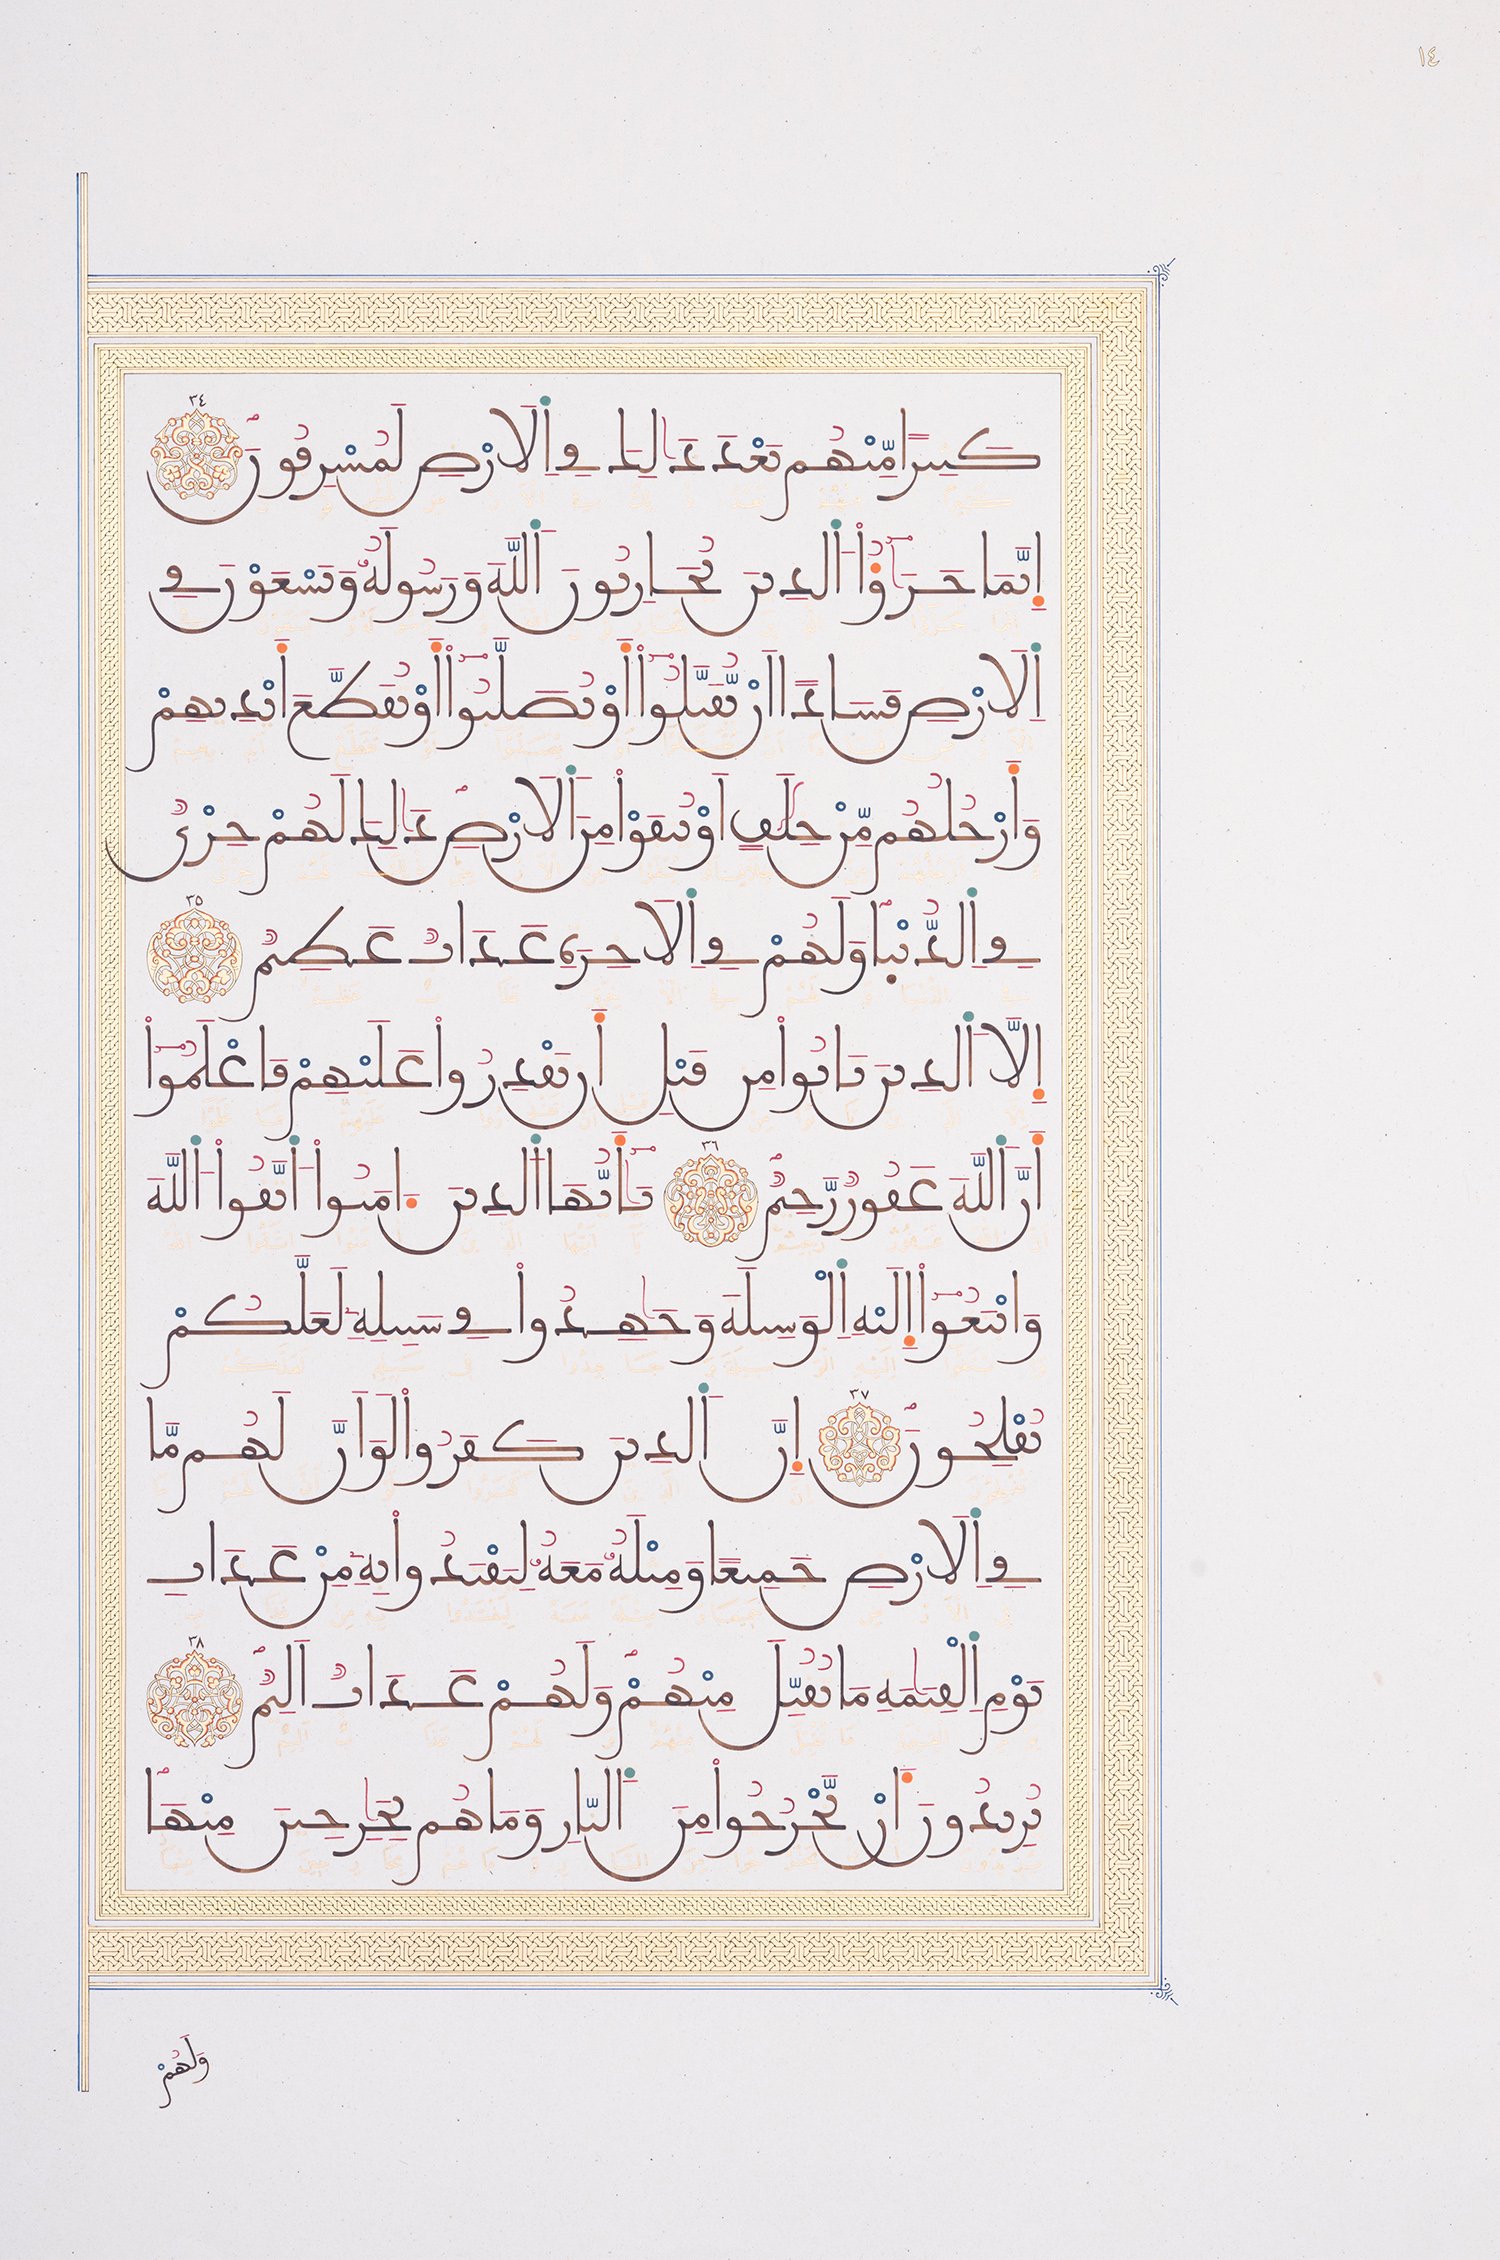 ١٤
كَثِيراً مِّنْهُم بَعْدَ ذَٰلِكَ فِي اِلَارْضِ لَمُسْرِفُونَ ٣٤
إِنَّمَا جَزَٰٓؤُا اُ۬لذِينَ يُحَارِبُونَ اَ۬للَّهَ وَرَسُولَهُۥ وَيَسْعَوْنَ فِي
اِ۬لَارْضِ فَسَاداً اَنْ يُّقَتَّلُوٓا أَوْ يُصَلَّبُوٓا أَوْ تُقَطَّعَ أَيْدِيهِمْ
وَأَرْجُلُهُم مِّنْ خِلَٰفٍ اَوْ يُنفَوْا مِنَ اَ۬لَارْضِ ذَٰلِكَ لَهُمْ خِزْيٌ
فِي اِ۬لدُّنْيَا وَلَهُمْ فِي اِ۬لَاخِرَةِ عَذَابٌ عَظِيمٌ ٣٥
إِلَّا اَ۬لذِينَ تَابُوا مِن قَبْلِ أَن تَقْدِرُوا عَلَيْهِمْ فَاعْلَمُوٓا
أَنَّ اَ۬للَّهَ غَفُورٌ رَّحِيمٌ ٣٦ يَٰٓأَيُّهَا اَ۬لذِينَ ءَامَنُوا اُ۪تَّقُوا اُ۬للَّهَ
وَابْتَغُوٓا إِلَيْهِ اِ۬لْوَسِيلَةَ وَجَٰهِدُوا فِي سَبِيلِهِۦ لَعَلَّكُمْ
تُفْلِحُونَ ٣٧ إِنَّ اَ۬لذِينَ كَفَرُوا لَوَ اَنَّ لَهُم مَّا
فِي اِ۬لَارْضِ جَمِيعاً وَمِثْلَهُۥ مَعَهُۥ لِيَفْتَدُوا بِهِۦ مِنْ عَذَابِ
يَوْمِ اِ۬لْقِيَٰمَةِ مَا تُقُبِّلَ مِنْهُمْ وَلَهُمْ عَذَابٌ اَلِيمٌ ٣٨
يُرِيدُونَ أَنْ يَّخْرُجُوا مِنَ اَ۬لنَّارِ وَمَا هُم بِخَٰرِجِينَ مِنْهَا
وَلَهُمْ